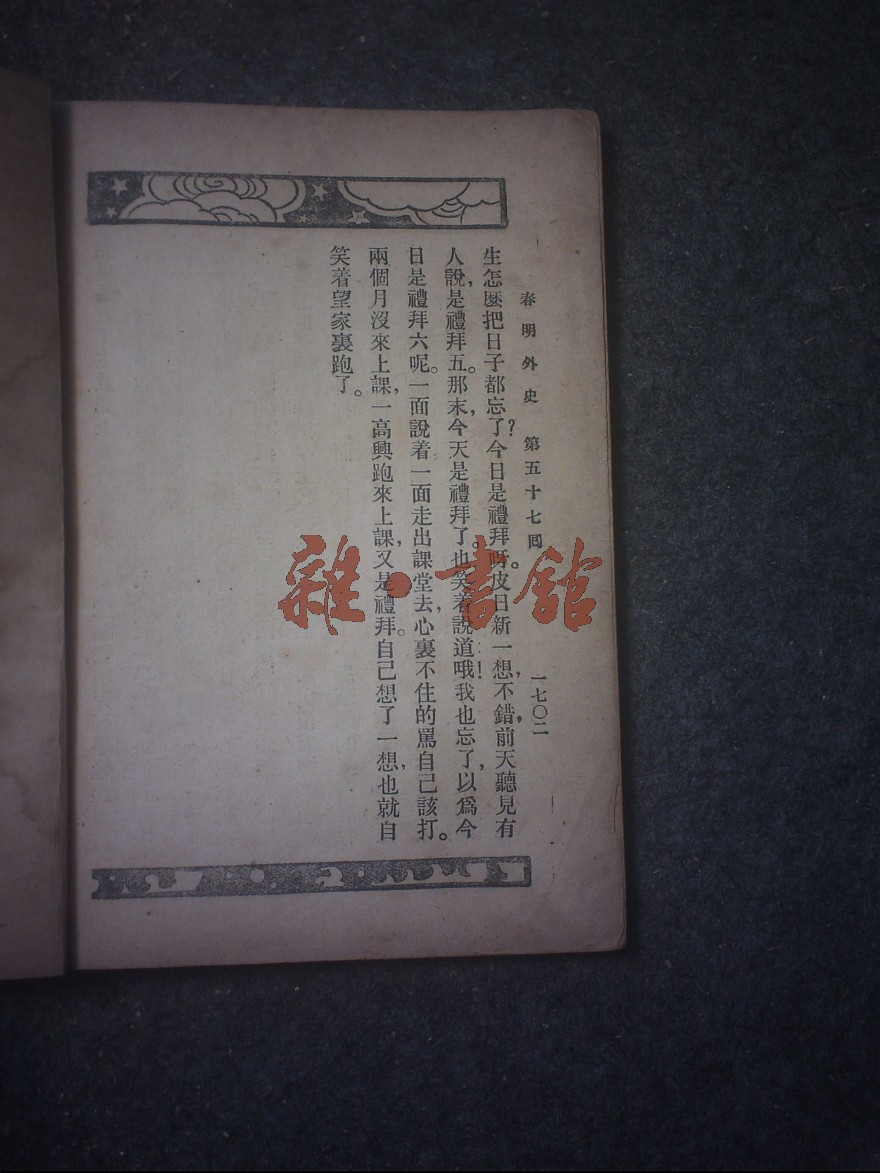 春明外史 第五十七回 一七〇二
生怎麽把日子都忘了?今日是禮拜呀。皮日新一想,不錯,前天聽見有
人說,是禮拜五。那末,今天是禮拜了。也笑着說道哦!我也忘了,以爲今
日是禮拜六呢。一面說着一面走出課堂去,心裏不住的罵自己該打。
兩個月沒來上課,一高興跑來上課,又是禮拜。自己想了一想,也就自
笑着望家裏跑了。
雜·書館